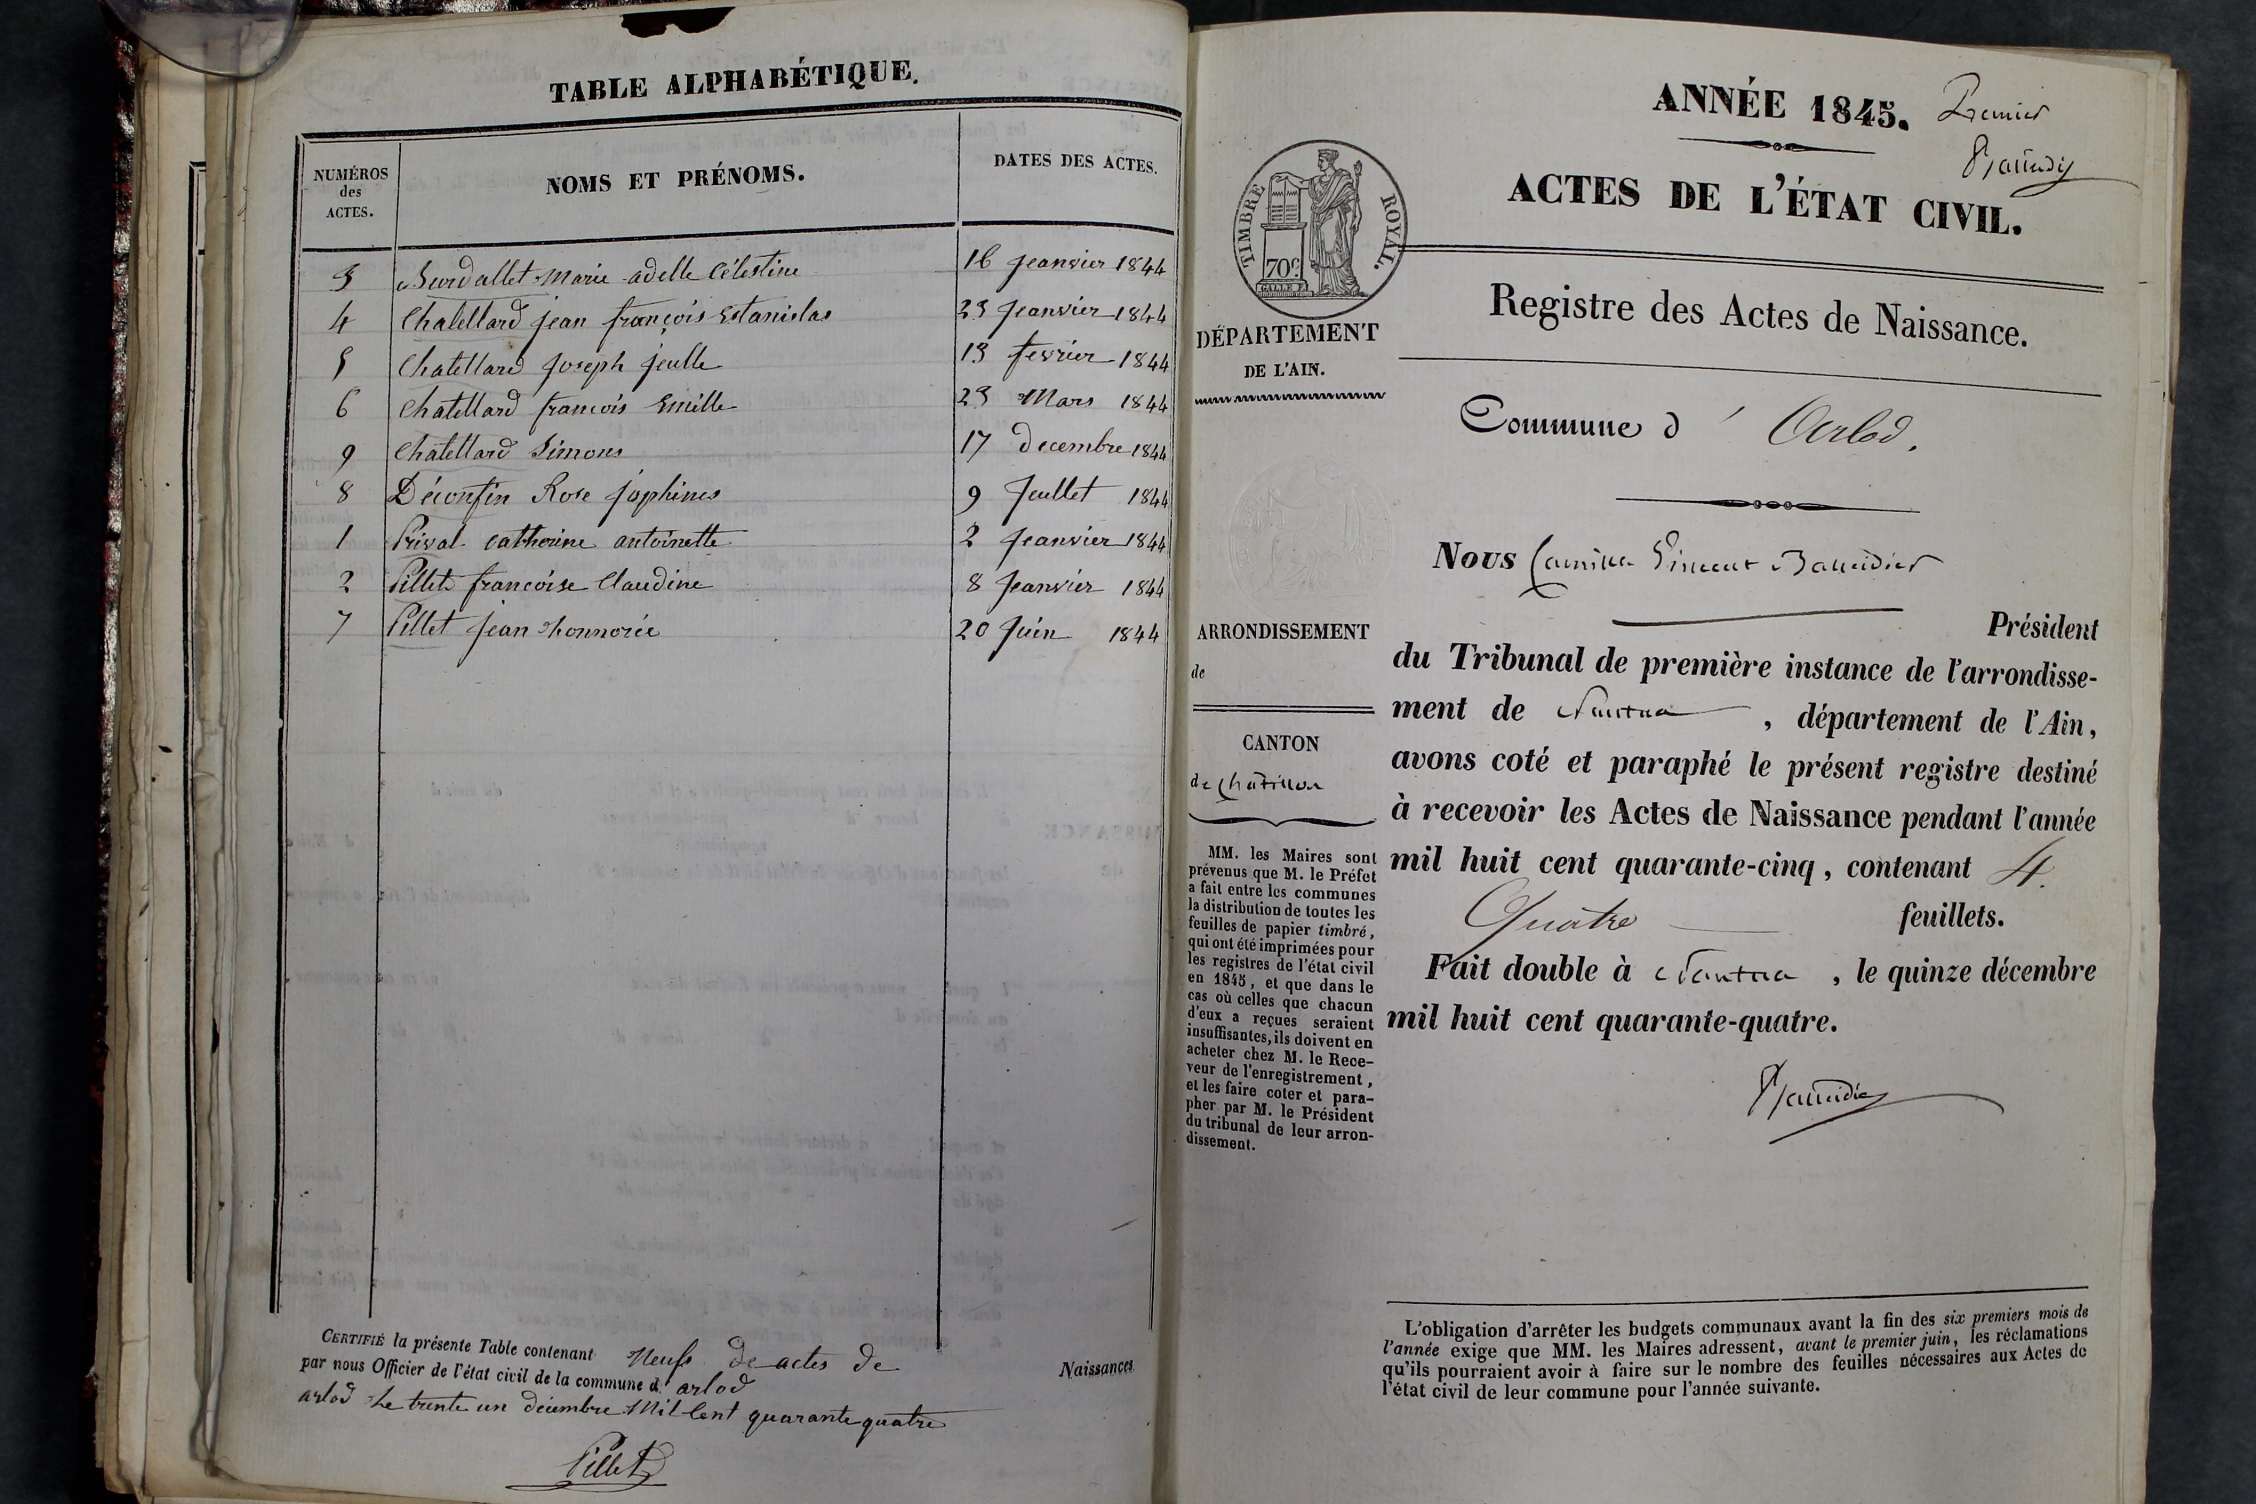 TABLE ALPHABÉTIQUE.
NUMÉROS
des
ACTES.
NOMS ET PRÉNOMS.
DATES DES ACTES.
3 Burdallet Marie adelle Célestine 16 Jeanvier 1844
4 Chatellard jean françois Estanislas 23 Jeanvier 1844
5 Chatellard Joseph jeulle 13 fevrier 1844
6 Chatellard francois Emille 23 Mars 1844
9 Chatellard Simons 17 decembre 1844
8 Déconfin Rose jophines 9 Jeullet 1844
1 Prival catherine antoinette 2 Jeanvier 1844
2 Pillet francoise Claudine 8 Jeanvier 1844
7 Pillet jean honnorée 20 Juin 1844
CERTIFIÉ la présente Table contenant Neufs de actes de Naissances
par nous Officier de l'état civil de la commune d. arlod
arlod Le trente un decembre Mil Cent quarante quatre
Pillet
ANNÉE 1845. Premier
ACTES DE L'ÉTAT CIVIL.
TIMBRE ROYAL.
70c
Registre des Actes de Naissance.
DÉPARTEMENT
DE L'AIN.
Commune d' Arlod.
Nous Camille Vincent Baudier
Président
ARRONDISSEMENT
de
du Tribunal de première instance de l'arrondisse-
ment de Nantua, département de l'Ain,
CANTON
de Chatillon
avons coté et paraphé le présent registre destiné
à recevoir les Actes de Naissance pendant l'année
mil huit cent quarante-cinq, contenant 4.
Quatre feuillets.
Fait double à Nantua, le quinze décembre
mil huit cent quarante-quatre.
MM. les Maires sont
prévenus que M. le Préfet
a fait entre les communes
la distribution de toutes les
feuilles de papier timbré,
qui ont été imprimées pour
les registres de l'état civil
en 1845, et que dans le
cas où celles que chacun
d'eux a reçues seraient
insuffisantes, ils doivent en
acheter chez M. le Rece-
veur de l'enregistrement,
et les faire coter et para-
pher par M. le Président
du tribunal de leur arron-
dissement.
L'obligation d'arrêter les budgets communaux avant la fin des six premiers mois de
l'année exige que MM. les Maires adressent, avant le premier juin, les réclamations
qu'ils pourraient avoir à faire sur le nombre des feuilles nécessaires aux Actes de
l'état civil de leur commune pour l'année suivante.